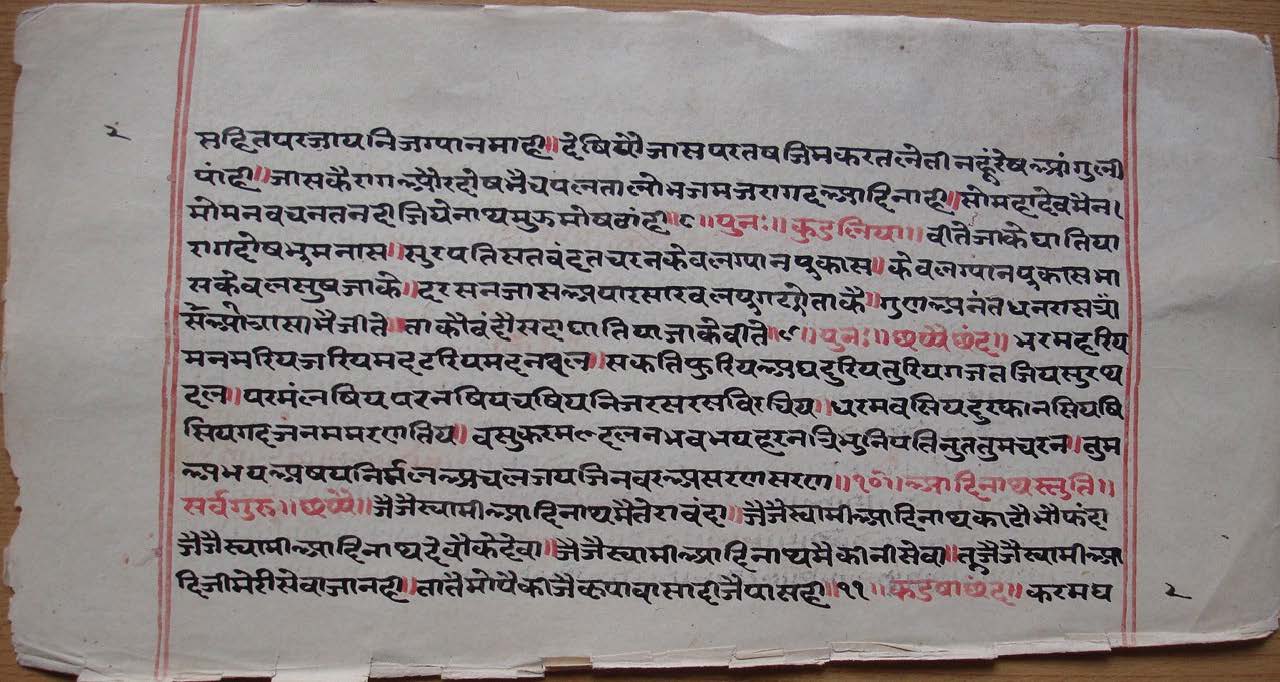 २
सहितपरजायनिजग्यानमाही॥देषियौजासपरतषजिमकरतलेतीनहूंरेषआंगुली
पांही॥जासकैरागऔरदोषभैचपलतालोभजमजरागदआदिनाही॥सोमहादेवभैन।
मोमनवचनतनहीजियेनाथमुझमोषठांही॥८॥पुनः॥कुडलिया॥वीतेजाकेघातिया
रागदोषभ्रमनास॥सुरपतिसतवंदतचरनकेवलग्यानप्रकास॥केवलग्यानप्रकासभा
सकेवलसुषजाके॥दरसनजासअपारसारवलप्रगट्योताकै॥गुणअनंतधनरास
सैओठासामैजीते॥ताकौवंदौसदाघातियाजाकेवीते॥९॥पुनः॥छप्पैछंद॥भरमहरिय
मनमरियजरियमदटरियमदनवल॥सकतिफुरियअघदुरियतुरियगजतजियसुरथ
दल॥परमंलषियपरनषियचषियनिजरसरसविरचिय॥धरमवसियदुरफानसियषि
सियगदजनममरणतिय॥वसुकरमदलनभवभयहरनत्रिभुनिपतिनुततुमचरन॥तुम
अभयअषयनिर्मलअचलजयजिनवरअसरणसरण॥१०॥आदिनाथस्तुति॥
सर्वगुरु॥छप्पै॥जैजैस्वामीआदिनाथमैतेरावंदा॥जैजैस्वामीआदिनाथकाटौभौफंदा
जैजैस्वामीआदिनाथदेवौकेदेवा॥जैजैस्वामीआदिनाथमैकीनीसेवा॥तूजैजैस्वामीआ
दिजीमेरीसेवाजानही॥तातैमोपैकीजैकृपावासादीजैपासही॥११॥कडुषाछंद॥करमघ
२